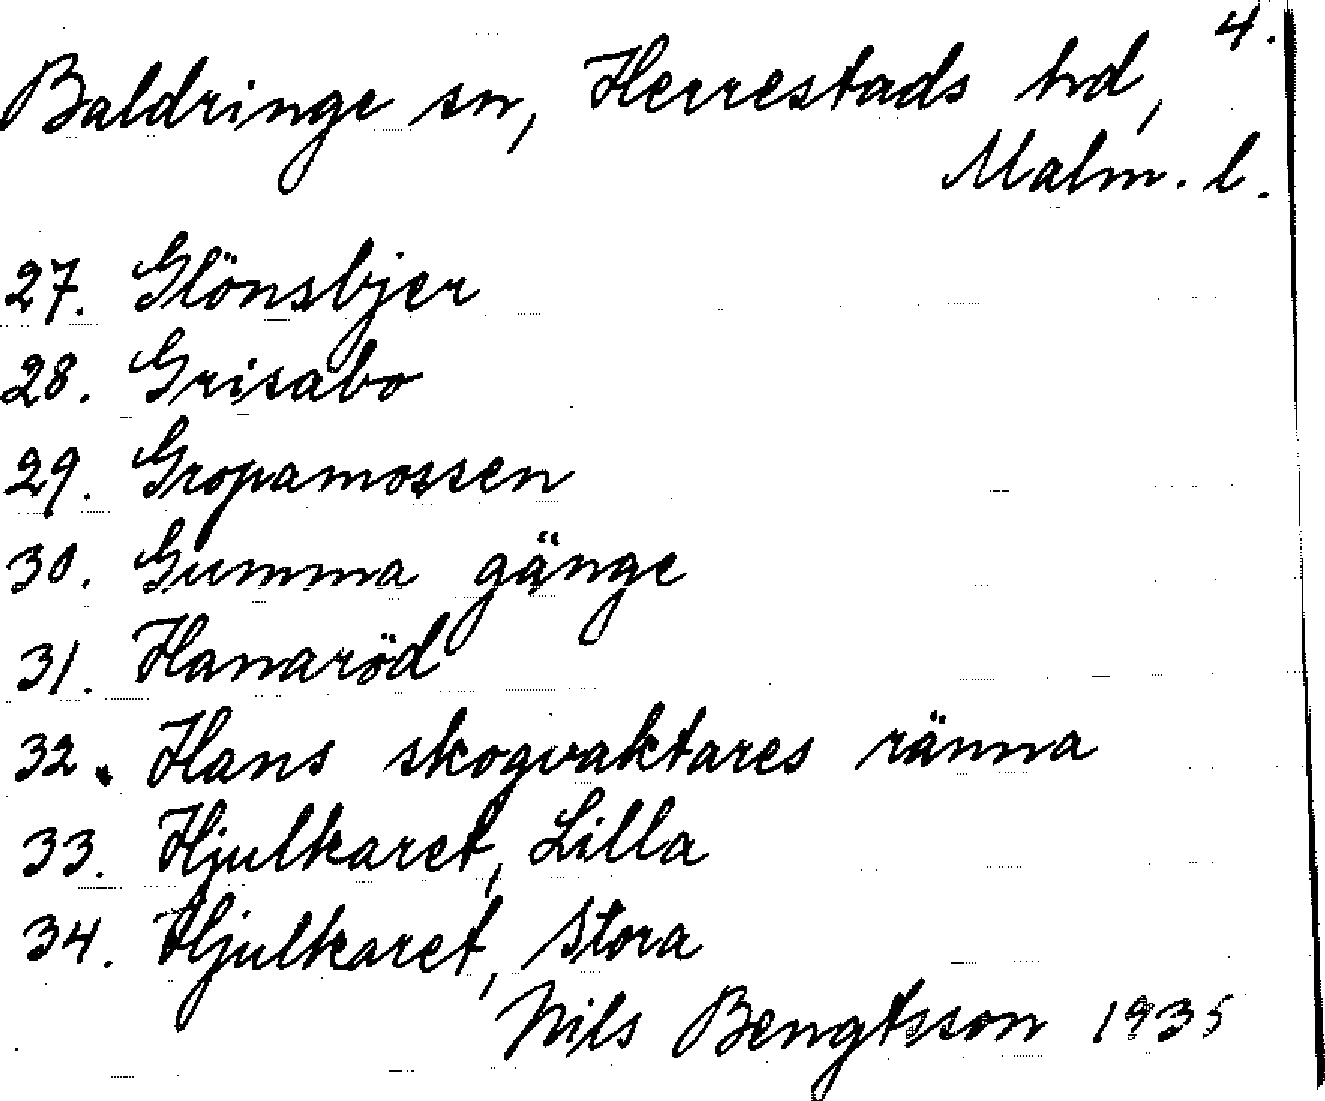 4.
Baldringe sn, Herrestads hd,
Malm. l.
27. Glönsbjer
28. Grisabo
29. Gropamossen
30. Gumma gänge
31. Hanaröd
32. Hans skogvaktares ränna
33. Hjulkaret, Lilla
34. Hjulkaret, Stora
Nils Bengtsson 1935